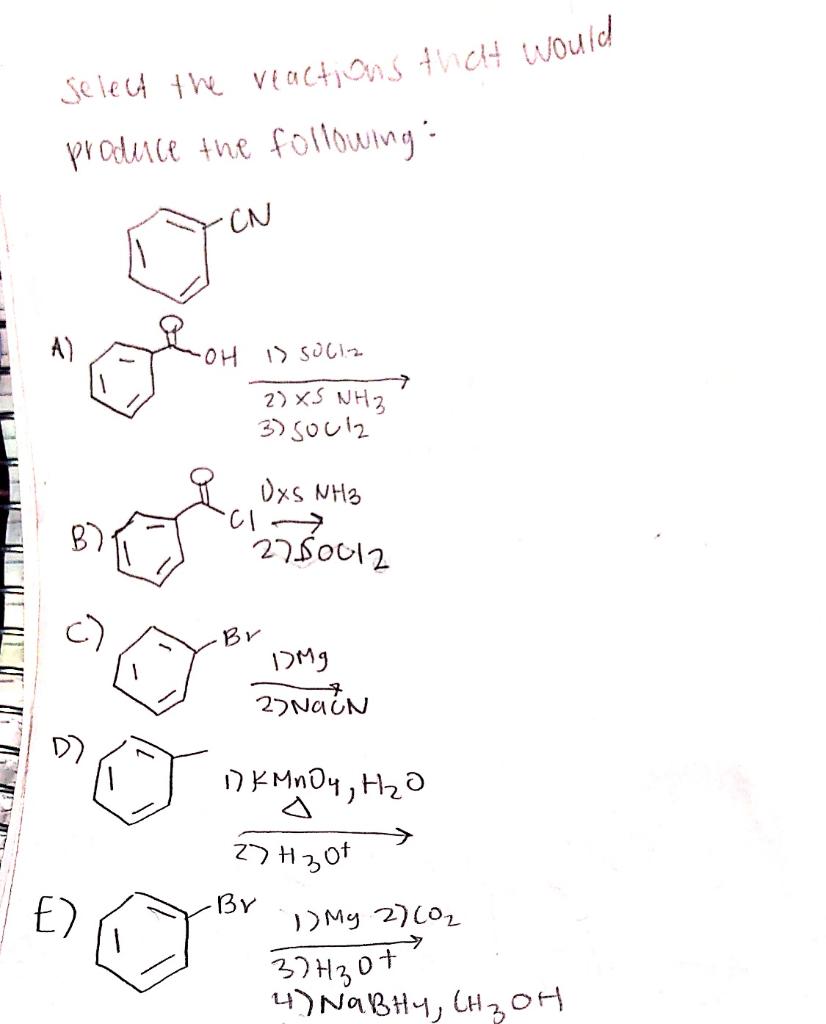 Select the reactions that would
produce the following:
CN
A) O OH 1) SOCl2
2) XS NH3
3) SOCl2
B) O Cl 1) xs NH3
2) SOCl2
C) Br 1) Mg
2) NaCN
D) 1) KMnO4, H2O
Δ
2) H3O+
E) Br 1) Mg 2) CO2
3) H3O+
4) NaBH4, CH3OH